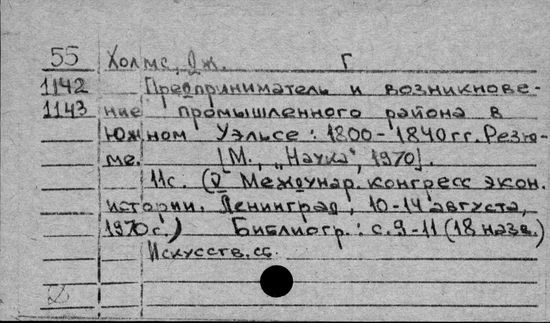 55 Холмс, Дж. Г
1142 Предприниматель и возникнове-
1143 ние промышленного района в
Южном Уэльсе: 1800-1840 гг. Резю-
ме. [М., „Наука", 1970].
11с. (V Междунар. конгресс экон.
истории. Ленинград, 10-14 августа,
1970 г.) Библиогр.: с.9-11 (18 назв.)
Искусств. сб.